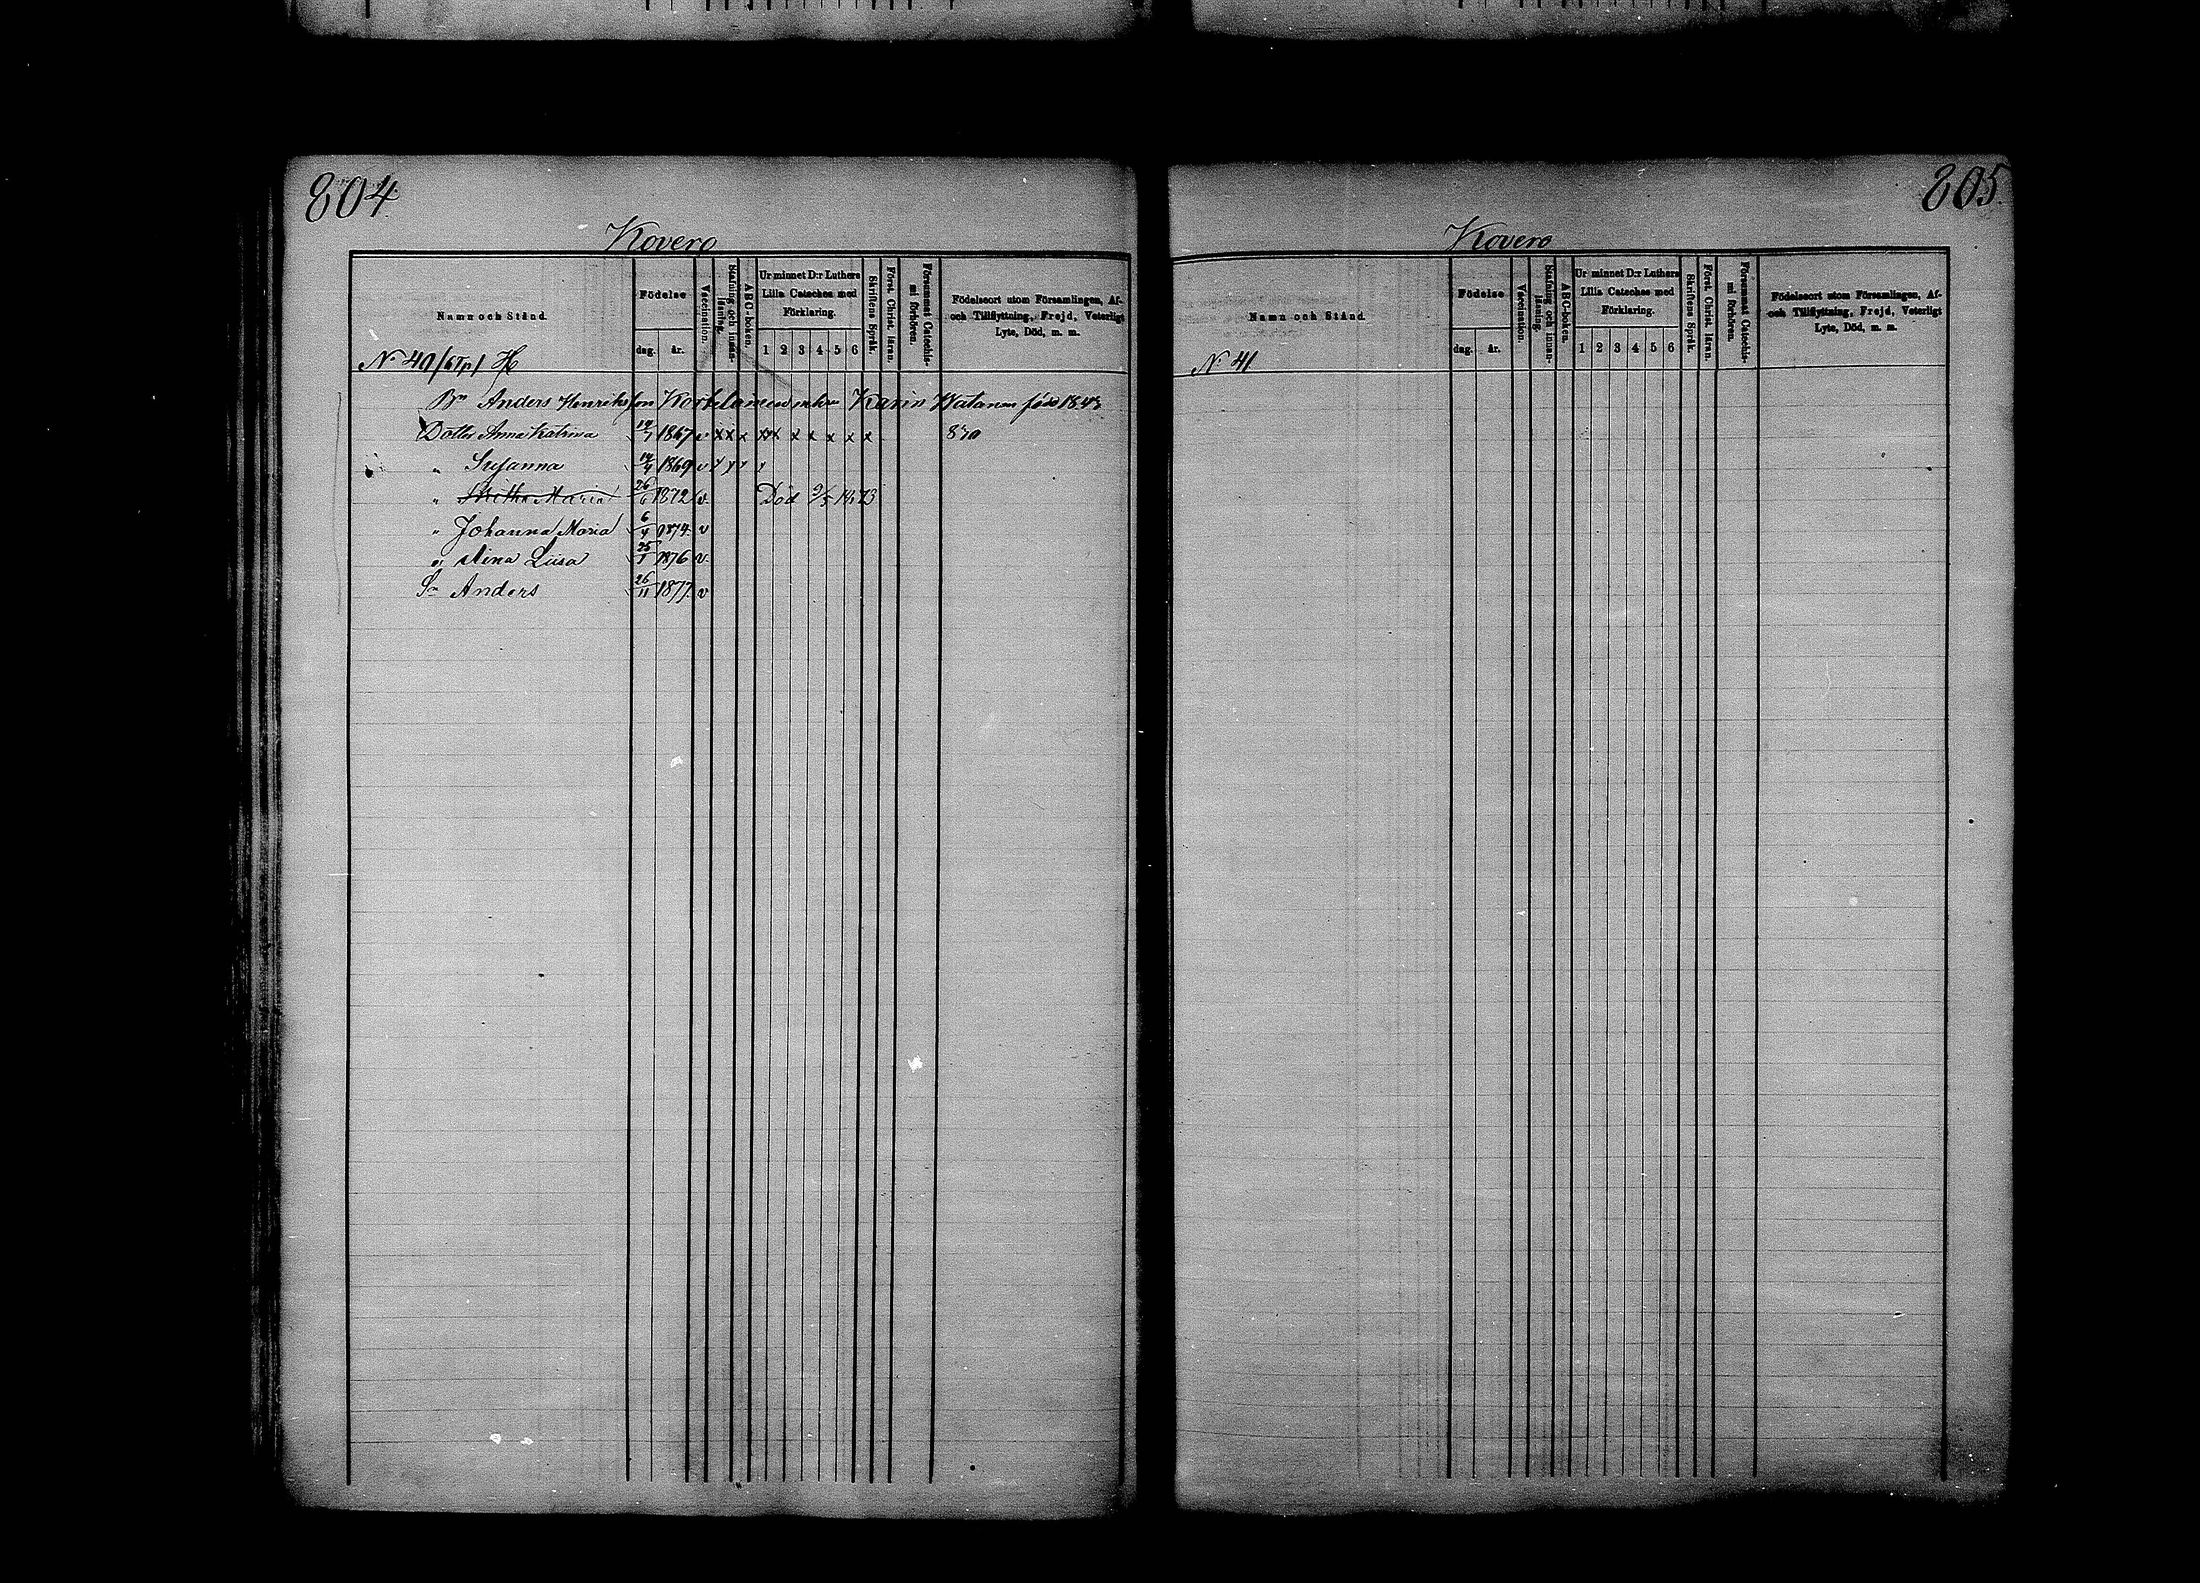 804
Kovero
Namn och Stånd.
Födelse
dag.
år.
Vaccination.
Stafning och innan-
läsning.
ABC-boken.
Ur minnet D:r Luthers
Lilla Cateches med
Förklaring.
1 2 3 4 5 6
Skriftens Språk.
Först. Christ. läran.
Försummat Catechis-
mi förhören.
Födelseort utom Församlingen, Af-
och Tillflyttning, Frejd, Veterligt
Lyte, Död, m. m.
N 40
Bn Anders Henriksson med Karin Watanen född 1843
Dotter Anna Katrina 1867 v x x x x x x x x x x 830
" Susanna 14/4 1869 v
" Maria 26/6 1872 v Död 9/5 1873
" Johanna Maria 6/4 1874 v
" Stina Liisa 25/1 1876 v
Sn Anders 26/11 1877 v
805.
Kovero
Namn och Stånd.
Födelse
dag.
år.
Vaccination.
Stafning och innan-
läsning.
ABC-boken.
Ur minnet D:r Luthers
Lilla Cateches med
Förklaring.
1 2 3 4 5 6
Skriftens Språk.
Först. Christ. läran.
Försummat Catechis-
mi förhören.
Födelseort utom Församlingen, Af-
och Tillflyttning, Frejd, Veterligt
Lyte, Död, m. m.
N 41